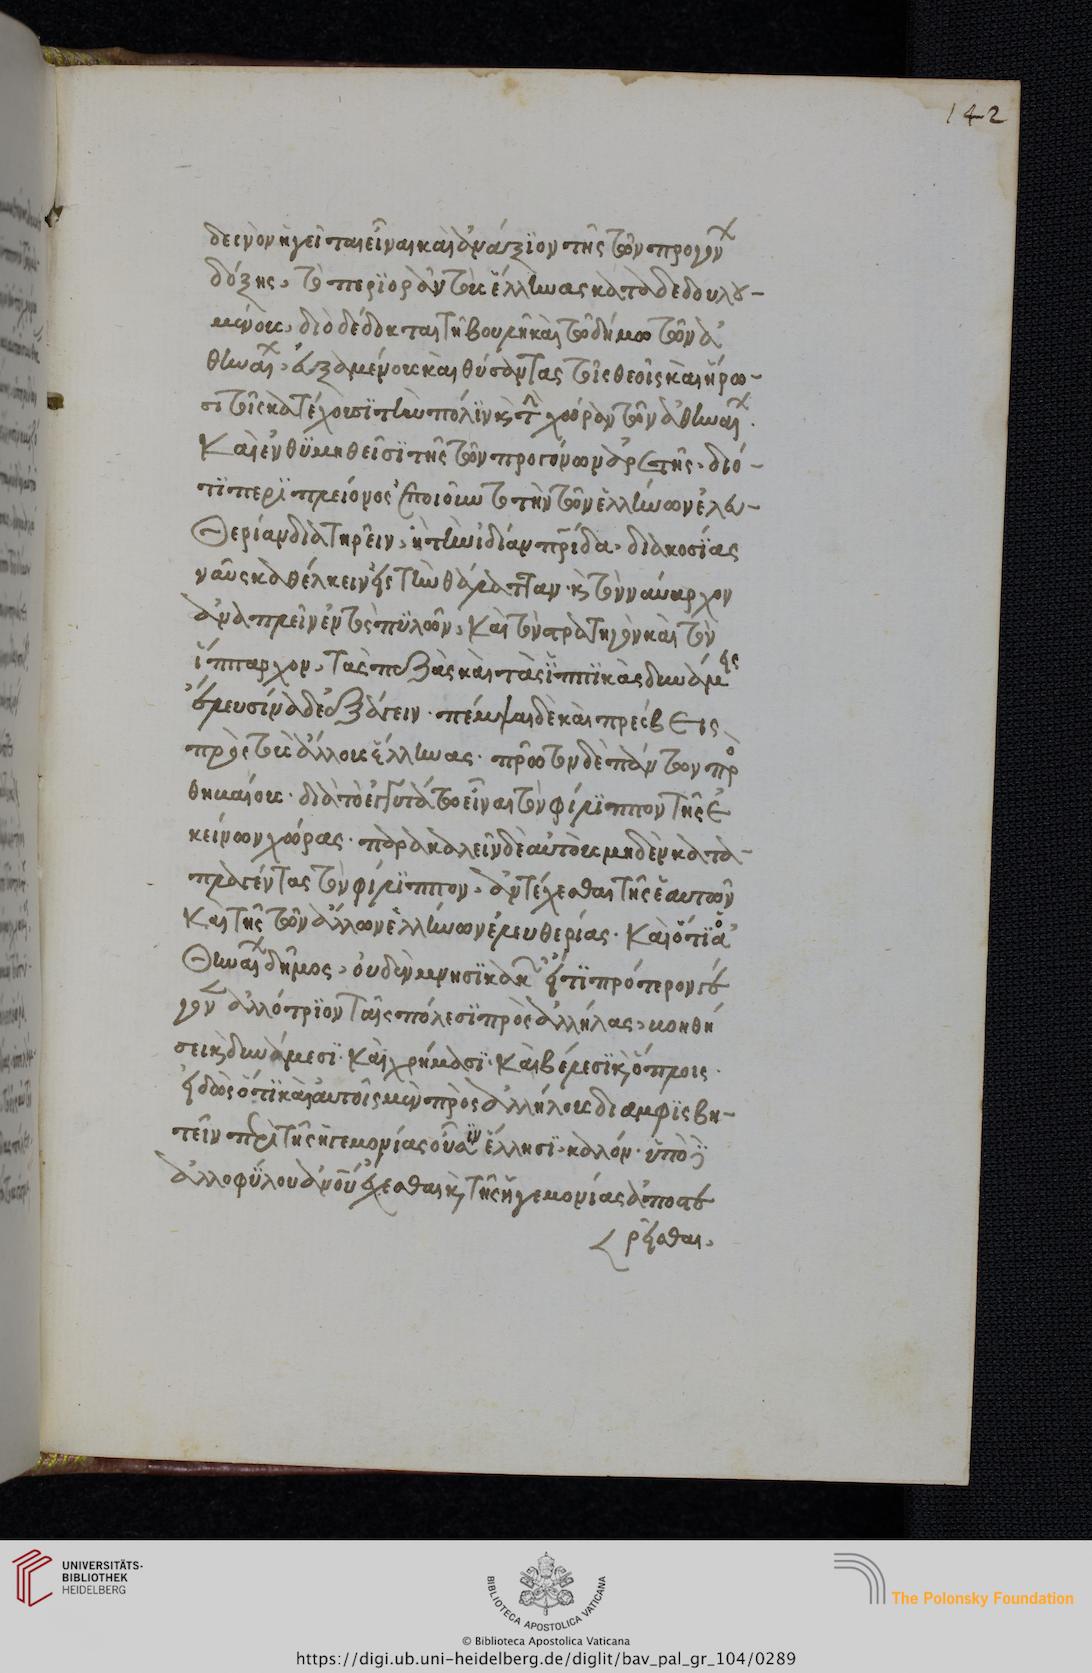 142
δεινὸν ἡγεῖται εἶναι καὶ ἀνάξϊον τῆς τῶν προγόν
δόξης, τὸ περϊορᾶν τοὺς ἕλληνας καταδεδουλου-
μένους, διὸ δέδοκται τῆ βουλῆ καὶ τῶ δήμω τῶν ἀ
θηναί, εὐξαμένους καὶ θύσαντας τοῖς θεοῖς καὶ ἥρω-
σι τοῖς κατέχουσϊ τὴν πόλϊν καὶ τὴν χώραν τῶν ἀθηναί.
Καὶ ἐνθϋμηθεῖσϊ τῆς τῶν προγόνων ἀρετῆς, διό-
τϊ περϊ πλείονος ἐποιοῦντο τὴν τῶν ἑλλήνων ἐλευ-
θερίαν διατηρεῖν, ἢ τὴν ἰδίαν πρίδα, διακοσϊας
ναῦς καθέλκειν εἰς τὴν θάλατταν. καὶ τὸν ναύαρχον
ἀναπλεῖν ἐντὸς πϋλῶν, Καὶ τὸν στρατηγὸν καὶ τὸν
ἵππαρχον, τὰς πεζὰς καὶ τὰς ἱππϊκὰς δυνάμεις
ἐλευσίναδε ἐξάγειν. πέμψαι δὲ καὶ πρέσβεις
πρὸς τοὺς ἄλλους ἕλληνας. πρῶτον δὲ πάντων πρὸ
θηβαίους. διὰ τὸ ἐγγυτάτω εἶναι τὸν φίλϊππον τῆς ἐ
κείνων χώρας. παρακαλεῖν δὲ αὐτοὺς μηδὲν κατα-
πλαγέντας τὸν φίλϊππον, ἀντέχεσθαι τῆς ἑαυτῶν
Καὶ τῆς τῶν ἄλλων ἑλλήνων ἐλευθερίας. Καὶ ὅτϊ ὁ ἀ
θηναί δῆμος, οὐδὲν μνησϊκακῶν εἴ τϊ πρότερον γέ
γον ἀλλότρϊον ταῖς πόλεσϊ πρὸς ἀλλήλας, βοηθή
σει καὶ δυνάμεσϊ. Καὶ χρήμασϊ. Καὶ βέλεσϊ καὶ ὅπλοις.
εἰδὼς ὅτϊ καὶ αὐτοῖς μὲν πρὸς ἀλλήλους διαμφϊσβη-
τεῖν περὶ τῆς ἡγεμονίας οὖσϊν ἕλλησϊ, καλόν. ὑπὸ δὲ
ἀλλοφύλου ἀνοῦ ἄρχεσθαι καὶ τῆς ἡγεμονίας ἀποστε
ρεῖσθαι,
UNIVERSITÄTS-
BIBLIOTHEK
HEIDELBERG
BIBLIOTECA APOSTOLICA VATICANA
The Polonsky Foundation
© Biblioteca Apostolica Vaticana
https://digi.ub.uni-heidelberg.de/diglit/bav_pal_gr_104/0289